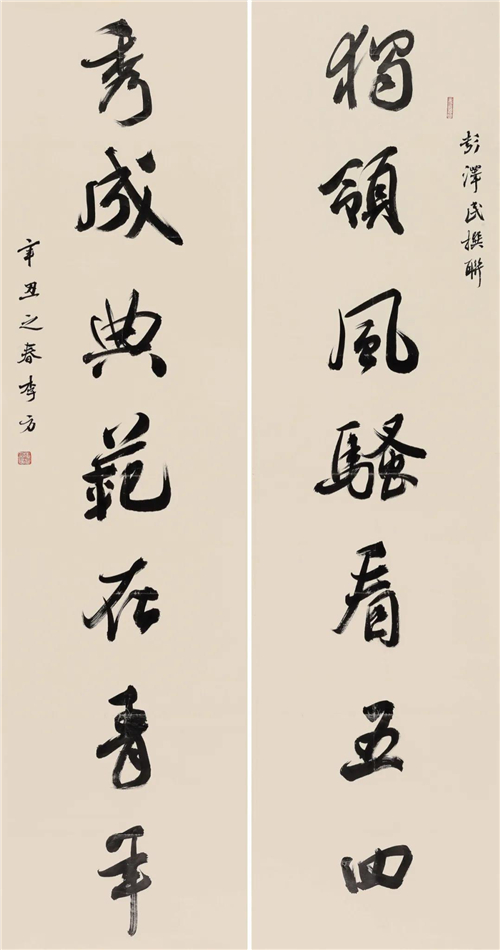 彭澤民撰聯
獨領風騷看五四
秀成典範在青年
辛丑之春李方